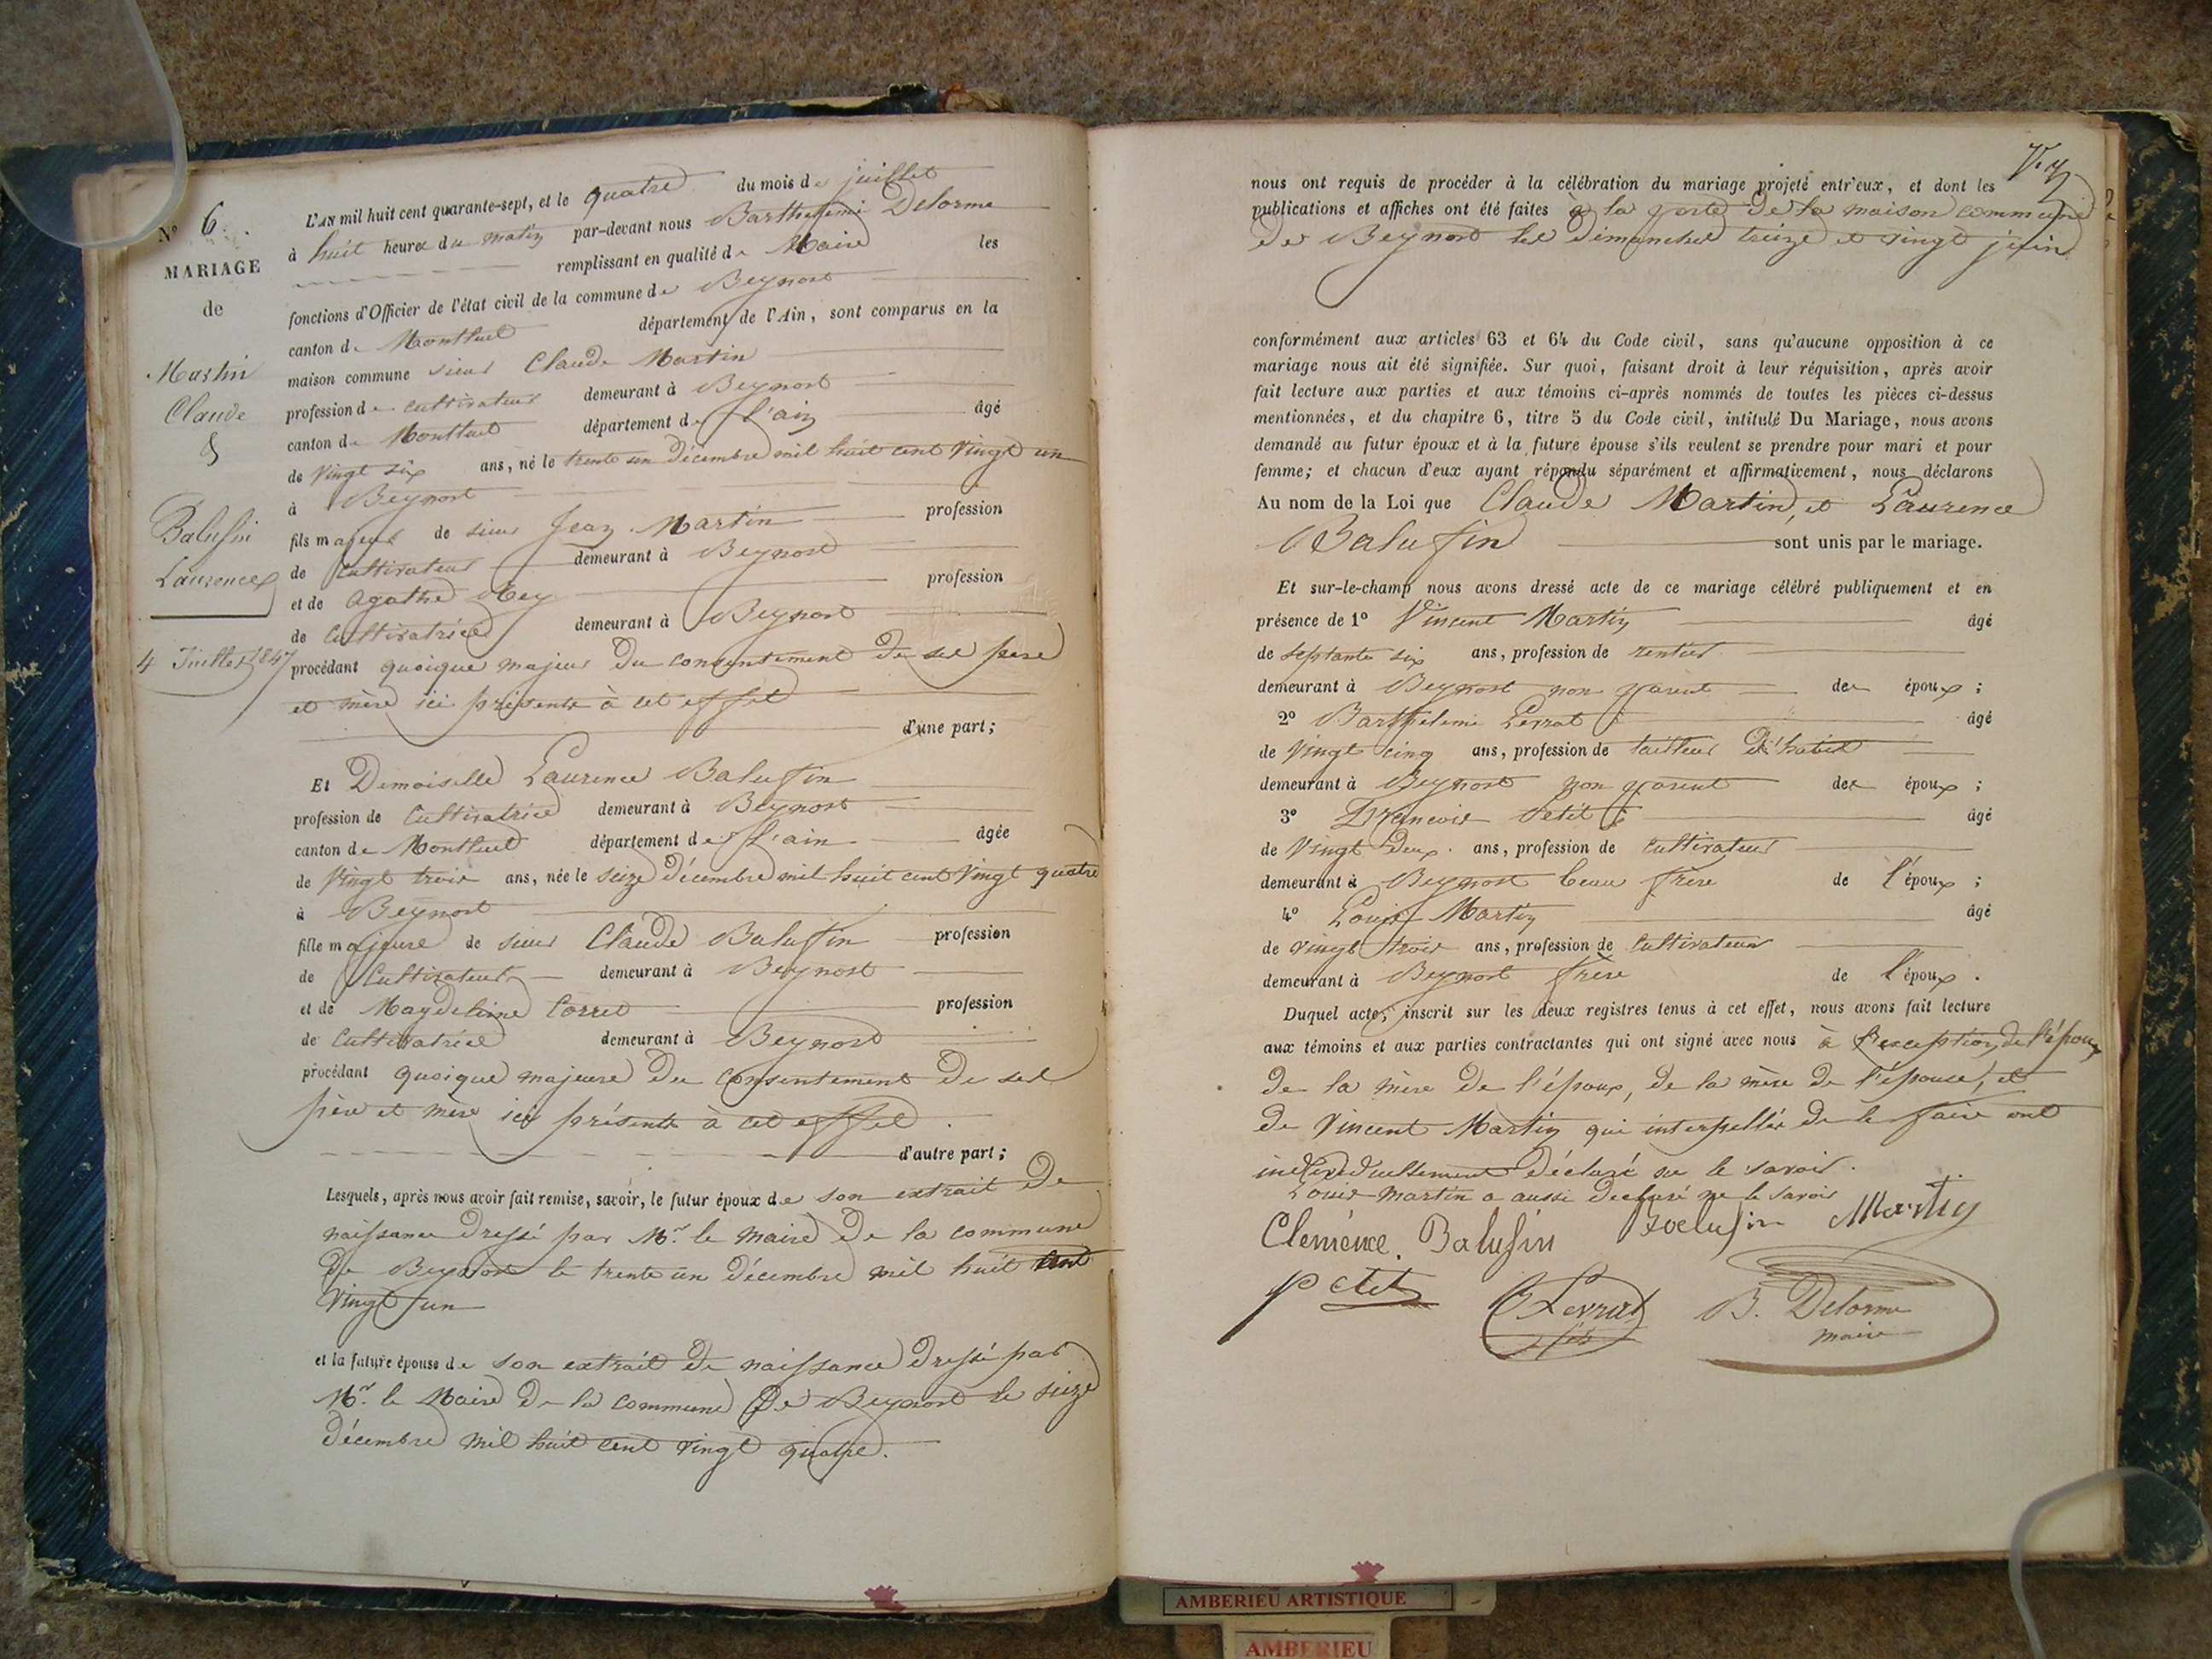 N° 6.
MARIAGE
de
Martin
Claude
&
Balufin
Laurence
4 Juillet 1847
L'AN mil huit cent quarante-sept, et le quatre du mois de juillet
à huit heures du matin par-devant nous Barthelemi Delorme
remplissant en qualité de Maire les
fonctions d'Officier de l'état civil de la commune de Beynost
canton de Montluel département de l'Ain, sont comparus en la
maison commune sieur Claude Martin
profession de cultivateur demeurant à Beynost
canton de Montluel département de l'ain âgé
de vingt six ans, né le trente un décembre mil huit cent vingt un
à Beynost
fils majeur de sieur Jean Martin profession
de cultivateur demeurant à Beynost
et de Agathe Rey profession
de Cultivatrice demeurant à Beynost
procédant quoique majeur du consentement de ses père
et mère ici présents à cet effet
d'une part;
Et Demoiselle Laurence Balufin
profession de Cultivatrice demeurant à Beynost
canton de Montluel département de l'ain âgée
de vingt trois ans, née le seize décembre mil huit cent vingt quatre
à Beynost
fille majeure de sieur Claude Balufin profession
de Cultivateur demeurant à Beynost
et de Magdeleine Corret profession
de Cultivatrice demeurant à Beynost
procédant quoique majeure du consentement de ses
père et mère ici présents à cet effet
d'autre part;
Lesquels, après nous avoir fait remise, savoir, le futur époux de son extrait de
naissance dressé par Mr. le maire de la commune
de Beynost le trente un décembre mil huit cent
vingt un
et la future épouse de son extrait de naissance dressé par
Mr. le Maire de la commune de Beynost le seize
décembre mil huit cent vingt quatre.
nous ont requis de procéder à la célébration du mariage projeté entr'eux, et dont les
publications et affiches ont été faites à la porte de la maison commune
de Beynost les dimanches treize et vingt juin
conformément aux articles 63 et 64 du Code civil, sans qu'aucune opposition à ce
mariage nous ait été signifiée. Sur quoi, faisant droit à leur réquisition, après avoir
fait lecture aux parties et aux témoins ci-après nommés de toutes les pièces ci-dessus
mentionnées, et du chapitre 6, titre 5 du Code civil, intitulé Du Mariage, nous avons
demandé au futur époux et à la future épouse s'ils veulent se prendre pour mari et pour
femme; et chacun d'eux ayant répondu séparément et affirmativement, nous déclarons
Au nom de la Loi que Claude Martin, et Laurence
Balufin sont unis par le mariage.
Et sur-le-champ nous avons dressé acte de ce mariage célébré publiquement et en
présence de 1° Vincent Martin âgé
de septante six ans, profession de rentier
demeurant à Beynost non parent des époux;
2° Barthelemi Levrat âgé
de vingt cinq ans, profession de tailleur d'habit
demeurant à Beynost non parent des époux;
3° Francois Petit âgé
de vingt deux ans, profession de cultivateur
demeurant à Beynost beau frère de l'époux;
4° Louis Martin âgé
de vingt trois ans, profession de cultivateur
demeurant à Beynost frère de l'époux.
Duquel acte, inscrit sur les deux registres tenus à cet effet, nous avons fait lecture
aux témoins et aux parties contractantes qui ont signé avec nous à l'exception de l'époux
de la mère de l'époux, de la mère de l'épouse, et
de Vincent Martin qui interpellés de le faire ont
individuellement déclaré ne le savoir.
Louis Martin a aussi declaré ne le savoir
Clemence Balufin Balufin Martin
Petit Levrat fils B. Delorme
maire
AMBERIEU ARTISTIQUE
AMBERIEU